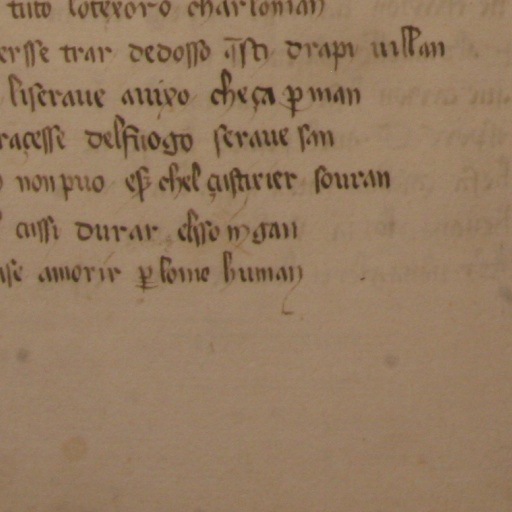 tuto lotexoro charlonian
ersse trar dedosso q̄sti drapi uillan
liseraue auixo cheça ꝑman
raçesse delfuogo seraue san
non puo esß chel çustixier souran
cussi durar elsso ingan
ase amorir ꝑlome human